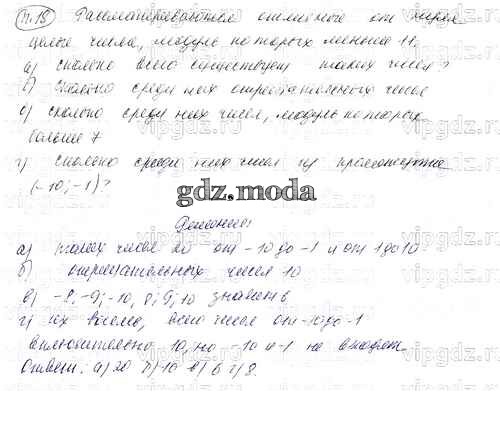 п.15 Рассматриваются отличные от нуля
целые числа, модуль которых меньше 11.
а) сколько всего существует таких чисел?
б) сколько среди них отрицательных чисел
в) сколько среди них чисел, модуль которых
больше 7
г) сколько среди них чисел из промежутка
(-10; -1)?
gdz.moda
Решение:
а) таких чисел 20 от -10 до -1 и от 1 до 10
б) отрицательных чисел 10
в) -8, -9; -10, 8; 9; 10 значит 6
г) их восемь, всего чисел от -10 до -1
включительно 10, но -10 и -1 не входят
Ответ: а) 20 б) 10 в) 6 г) 8.